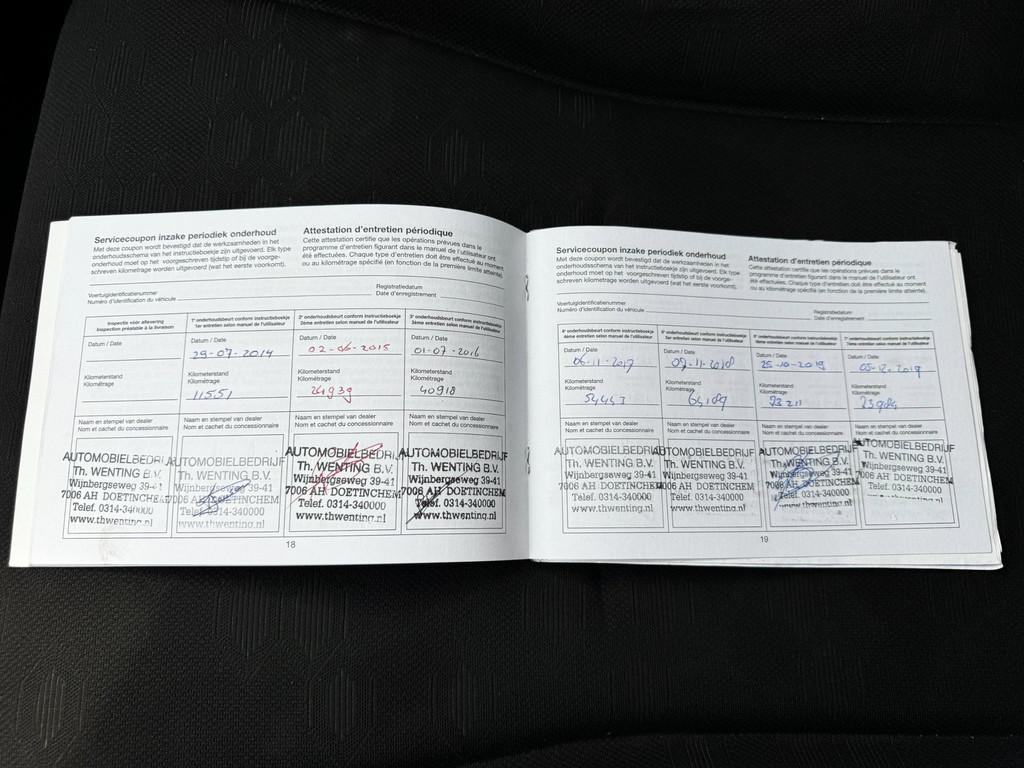 Servicecoupon inzake periodiek onderhoud
Met deze coupon wordt bevestigd dat de werkzaamheden in het
onderhoudsschema van het instructieboekje zijn uitgevoerd. Elk type
onderhoud moet op het voorgeschreven tijdstip of bij de voorge-
schreven kilometrage worden uitgevoerd (wat het eerste voorkomt).
Attestation d'entretien périodique
Cette attestation certifie que les opérations prévues dans le
programme d'entretien figurant dans le manuel de l'utilisateur ont
été effectuées. Chaque type d'entretien doit être effectué au moment
ou au kilométrage spécifié (en fonction de la première limite atteinte).
Voertuigidentificatienummer
Numéro d'identification du véhicule
Registratiedatum
Date d'enregistrement
Inspectie vóór aflevering
Inspection préalable à la livraison
1e onderhoudsbeurt conform instructieboekje
1er entretien selon manuel de l'utilisateur
2e onderhoudsbeurt conform instructieboekje
2ème entretien selon manuel de l'utilisateur
3e onderhoudsbeurt conform instructieboekje
3ème entretien selon manuel de l'utilisateur
Datum / Date
Datum / Date
Datum / Date
Datum / Date
29-07-2014
02-06-2015
01-07-2016
Kilometerstand
Kilométrage
Kilometerstand
Kilométrage
Kilometerstand
Kilométrage
Kilometerstand
Kilométrage
11551
40918
Naam en stempel van dealer
Nom et cachet du concessionnaire
Naam en stempel van dealer
Nom et cachet du concessionnaire
Naam en stempel van dealer
Nom et cachet du concessionnaire
Naam en stempel van dealer
Nom et cachet du concessionnaire
AUTOMOBIELBEDRIJ
Th. WENTING B.V.
Wijnbergseweg 39-41
7006 AH DOETINCHEM
Telef. 0314-340000
www.thwenting.nl
AUTOMOBIELBEDRIJF
Th. WENTING B.V.
Wijnbergseweg 39-41
7006 AH DOETINCHEM
Telef. 0314-340000
www.thwenting.nl
AUTOMOBIELBEDRIJ
Th. WENTING B.V.
Wijnbergseweg 39-41
7006 AH DOETINCHEM
Telef. 0314-340000
www.thwenting.nl
AUTOMOBIELBEDRIJF
Th. WENTING B.V.
Wijnbergseweg 39-41
7006 AH DOETINCHEM
Telef. 0314-340000
www.thwenting.nl
18
Servicecoupon inzake periodiek onderhoud
Met deze coupon wordt bevestigd dat de werkzaamheden in het
onderhoudsschema van het instructieboekje zijn uitgevoerd. Elk type
onderhoud moet op het voorgeschreven tijdstip of bij de voorge-
schreven kilometrage worden uitgevoerd (wat het eerste voorkomt).
Attestation d'entretien périodique
Cette attestation certifie que les opérations prévues dans le
programme d'entretien figurant dans le manuel de l'utilisateur ont
été effectuées. Chaque type d'entretien doit être effectué au moment
ou au kilométrage spécifié (en fonction de la première limite atteinte).
Voertuigidentificatienummer
Numéro d'identification du véhicule
Registratiedatum
Date d'enregistrement
4e onderhoudsbeurt conform instructieboekje
4ème entretien selon manuel de l'utilisateur
onderhoudsbeurt conform instructieboekje
entretien selon manuel de l'utilisateur
onderhoudsbeurt conform instructieboekje
entretien selon manuel de l'utilisateur
onderhoudsbeurt conform instructieboekje
entretien selon manuel de l'utilisateur
Datum / Date
Datum / Date
Datum / Date
Datum / Date
06-11-2017
-11-2018
25-10-2019
-12-2019
Kilometerstand
Kilométrage
Kilometerstand
Kilométrage
Kilometerstand
Kilométrage
Kilometerstand
Kilométrage
54443
64189
73211
Naam en stempel van dealer
Nom et cachet du concessionnaire
Naam en stempel van dealer
Nom et cachet du concessionnaire
Naam en stempel van dealer
Nom et cachet du concessionnaire
Naam en stempel van dealer
Nom et cachet du concessionnaire
AUTOMOBIELBEDRIJ
Th. WENTING B.V.
Wijnbergseweg 39-41
7006 AH DOETINCHEM
Telef. 0314-340000
www.thwenting.nl
AUTOMOBIELBEDRIJF
Th. WENTING B.V.
Wijnbergseweg 39-41
7006 AH DOETINCHEM
Telef. 0314-340000
www.thwenting.nl
AUTOMOBIELBEDRIJ
Th. WENTING B.V.
Wijnbergseweg 39-41
7006 AH DOETINCHEM
Telef. 0314-340000
www.thwenting.nl
AUTOMOBIELBEDRIJF
Th. WENTING B.V.
Wijnbergseweg 39-41
7006 AH DOETINCHEM
Telef. 0314-340000
19